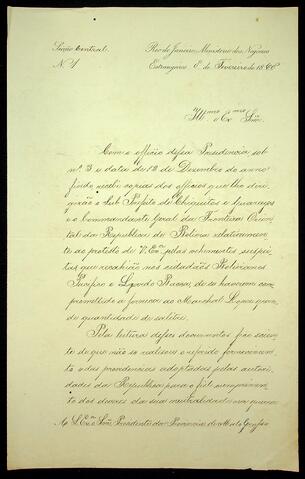 Secção Central.
Rio de Janeiro. Ministerio dos Negocios
N. 1
Estrangeiros 8 de Fevereiro de 1868
Ill.mo e Ex.mo Snr.
Com o officio dessa Presidencia sob
nº 3 e data de 12 de Dezembro do anno
findo recebi copias dos officios que lhe diri-
girão o Sub Prefeito de Chiquitos e Guarayos
e o Commandante Geral da Fronteira Orien-
tal da Republica de Bolivia relativamen-
te ao protesto de V. Ex.ª pelas vehementes suspei-
tas que recahião nos cidadãos Bolivianos
de se haverem com-
promettido a fornecer ao Marechal Lopes gran-
de quantidade de salitre.
Pela leitura desses documentos fico scien-
te de que não se realisou o referido fornecimento
e das providencias adoptadas pelas autori-
dades da Republica para o fiel cumprimen-
to dos deveres da sua neutralidade na guerra
A S. Ex.ª o Snr. Presidente da Provincia de Mato Grosso